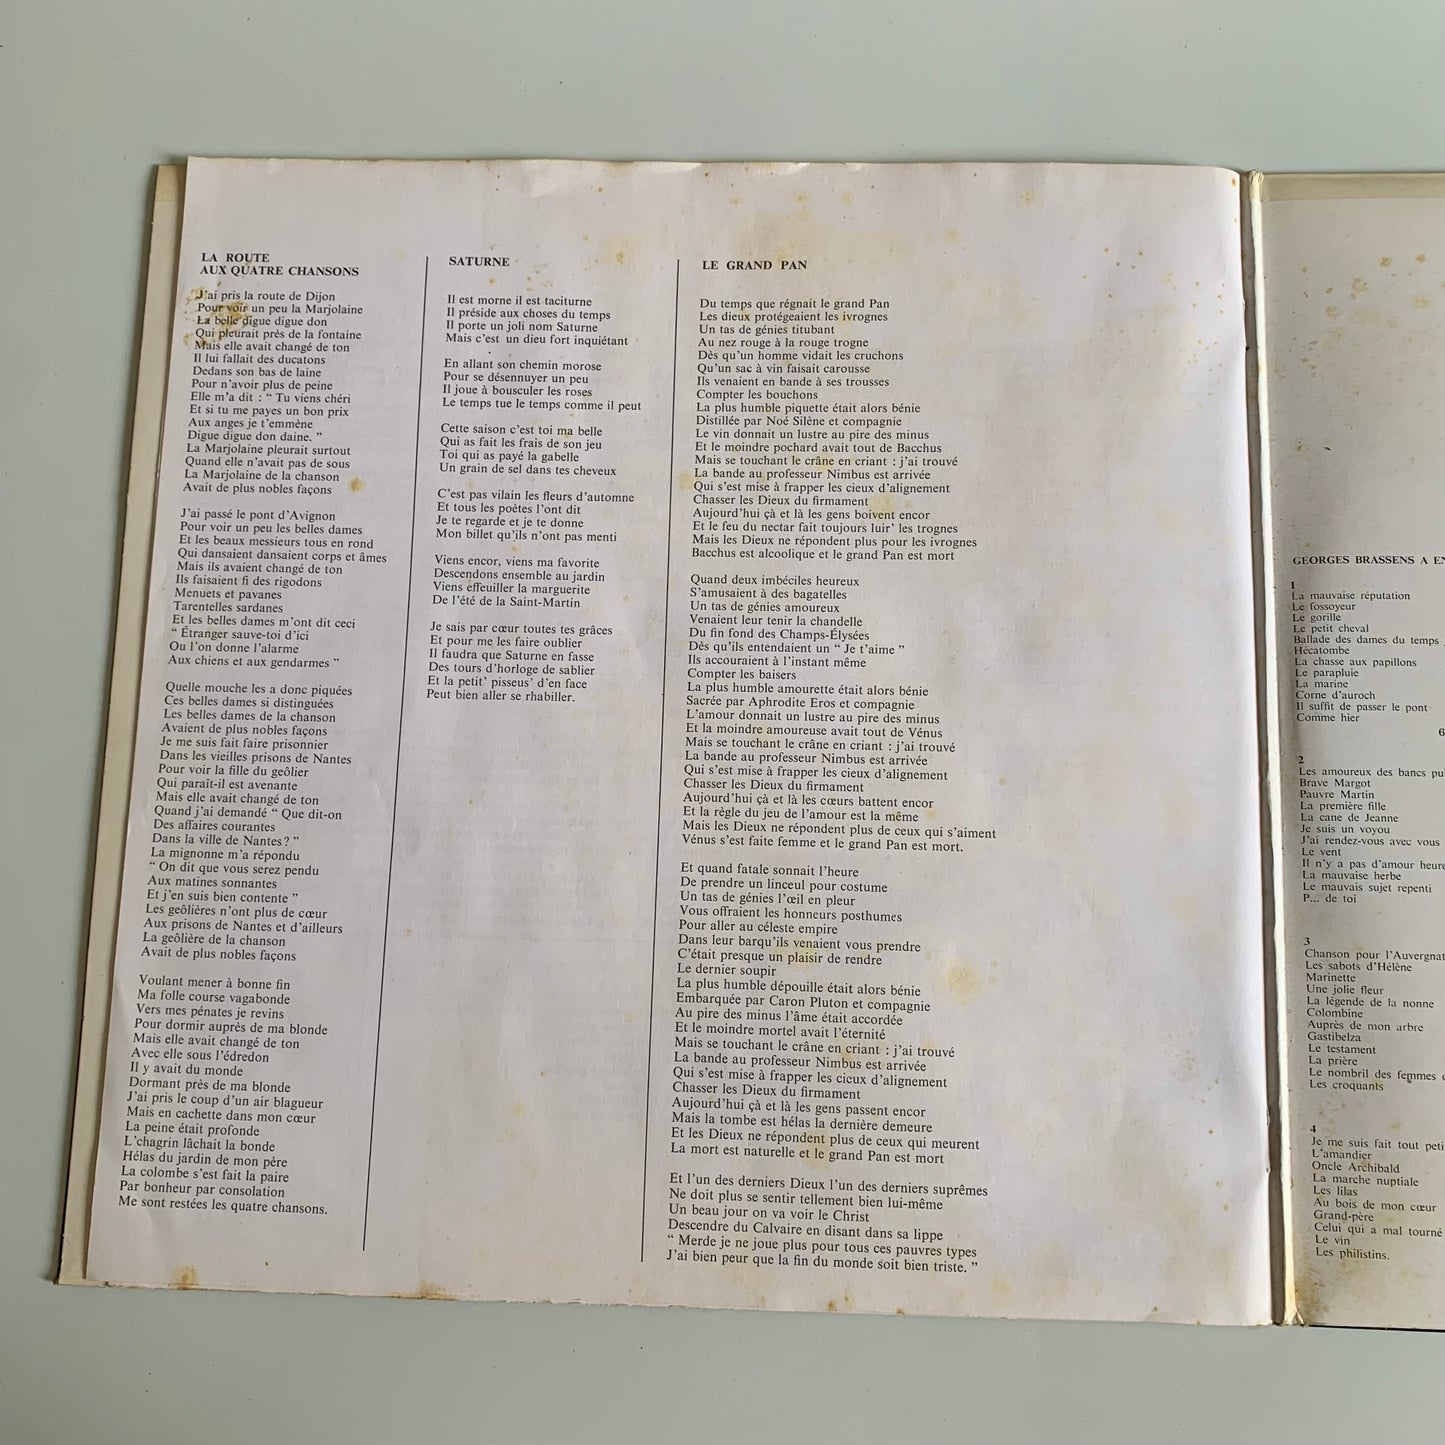 LA ROUTE
AUX QUATRE CHANSONS
J'ai pris la route de Dijon
Pour voir un peu la Marjolaine
La belle digue digue don
Qui pleurait près de la fontaine
Mais elle avait changé de ton
Il lui fallait des ducatons
Dedans son bas de laine
Pour n'avoir plus de peine
Elle m'a dit : “ Tu viens chéri
Et si tu me payes un bon prix
Aux anges je t'emmène
Digue digue don daine. ”
La Marjolaine pleurait surtout
Quand elle n'avait pas de sous
La Marjolaine de la chanson
Avait de plus nobles façons
J'ai passé le pont d'Avignon
Pour voir un peu les belles dames
Et les beaux messieurs tous en rond
Qui dansaient dansaient corps et âmes
Mais ils avaient changé de ton
Ils faisaient fi des rigodons
Menuets et pavanes
Tarentelles sardanes
Et les belles dames m'ont dit ceci
“ Étranger sauve-toi d'ici
Ou l'on donne l'alarme
Aux chiens et aux gendarmes ”
Quelle mouche les a donc piquées
Ces belles dames si distinguées
Les belles dames de la chanson
Avaient de plus nobles façons
Je me suis fait faire prisonnier
Dans les vieilles prisons de Nantes
Pour voir la fille du geôlier
Qui paraît-il est avenante
Mais elle avait changé de ton
Quand j'ai demandé “ Que dit-on
Des affaires courantes
Dans la ville de Nantes ? ”
La mignonne m'a répondu
“ On dit que vous serez pendu
Aux matines sonnantes
Et j'en suis bien contente ”
Les geôlières n'ont plus de cœur
Aux prisons de Nantes et d'ailleurs
La geôlière de la chanson
Avait de plus nobles façons
Voulant mener à bonne fin
Ma folle course vagabonde
Vers mes pénates je revins
Pour dormir auprès de ma blonde
Mais elle avait changé de ton
Avec elle sous l'édredon
Il y avait du monde
Dormant près de ma blonde
J'ai pris le coup d'un air blagueur
Mais en cachette dans mon cœur
La peine était profonde
L'chagrin lâchait la bonde
Hélas du jardin de mon père
La colombe s'est fait la paire
Par bonheur par consolation
Me sont restées les quatre chansons.
SATURNE
Il est morne il est taciturne
Il préside aux choses du temps
Il porte un joli nom Saturne
Mais c'est un dieu fort inquiétant
En allant son chemin morose
Pour se désennuyer un peu
Il joue à bousculer les roses
Le temps tue le temps comme il peut
Cette saison c'est toi ma belle
Qui as fait les frais de son jeu
Toi qui as payé la gabelle
Un grain de sel dans tes cheveux
C'est pas vilain les fleurs d'automne
Et tous les poètes l'ont dit
Je te regarde et je te donne
Mon billet qu'ils n'ont pas menti
Viens encor, viens ma favorite
Descendons ensemble au jardin
Viens effeuiller la marguerite
De l'été de la Saint-Martin
Je sais par cœur toutes tes grâces
Et pour me les faire oublier
Il faudra que Saturne en fasse
Des tours d'horloge de sablier
Et la petit' pisseus' d'en face
Peut bien aller se rhabiller.
LE GRAND PAN
Du temps que régnait le grand Pan
Les dieux protégeaient les ivrognes
Un tas de génies titubant
Au nez rouge à la rouge trogne
Dès qu'un homme vidait les cruchons
Qu'un sac à vin faisait carousse
Ils venaient en bande à ses trousses
Compter les bouchons
La plus humble piquette était alors bénie
Distillée par Noé Silène et compagnie
Le vin donnait un lustre au pire des minus
Et le moindre pochard avait tout de Bacchus
Mais se touchant le crâne en criant : j'ai trouvé
La bande au professeur Nimbus est arrivée
Qui s'est mise à frapper les cieux d'alignement
Chasser les Dieux du firmament
Aujourd'hui çà et là les gens boivent encor
Et le feu du nectar fait toujours luir' les trognes
Mais les Dieux ne répondent plus pour les ivrognes
Bacchus est alcoolique et le grand Pan est mort
Quand deux imbéciles heureux
S'amusaient à des bagatelles
Un tas de génies amoureux
Venaient leur tenir la chandelle
Du fin fond des Champs-Élysées
Dès qu'ils entendaient un “ Je t'aime ”
Ils accouraient à l'instant même
Compter les baisers
La plus humble amourette était alors bénie
Sacrée par Aphrodite Eros et compagnie
L'amour donnait un lustre au pire des minus
Et la moindre amoureuse avait tout de Vénus
Mais se touchant le crâne en criant : j'ai trouvé
La bande au professeur Nimbus est arrivée
Qui s'est mise à frapper les cieux d'alignement
Chasser les Dieux du firmament
Aujourd'hui çà et là les cœurs battent encor
Et la règle du jeu de l'amour est la même
Mais les Dieux ne répondent plus de ceux qui s'aiment
Vénus s'est faite femme et le grand Pan est mort.
Et quand fatale sonnait l'heure
De prendre un linceul pour costume
Un tas de génies l'œil en pleur
Vous offraient les honneurs posthumes
Pour aller au céleste empire
Dans leur barqu'ils venaient vous prendre
C'était presque un plaisir de rendre
Le dernier soupir
La plus humble dépouille était alors bénie
Embarquée par Caron Pluton et compagnie
Au pire des minus l'âme était accordée
Et le moindre mortel avait l'éternité
Mais se touchant le crâne en criant : j'ai trouvé
La bande au professeur Nimbus est arrivée
Qui s'est mise à frapper les cieux d'alignement
Chasser les Dieux du firmament
Aujourd'hui çà et là les gens passent encor
Mais la tombe est hélas la dernière demeure
Et les Dieux ne répondent plus de ceux qui meurent
La mort est naturelle et le grand Pan est mort
Et l'un des derniers Dieux l'un des derniers suprêmes
Ne doit plus se sentir tellement bien lui-même
Un beau jour on va voir le Christ
Descendre du Calvaire en disant dans sa lippe
“ Merde je ne joue plus pour tous ces pauvres types
J'ai bien peur que la fin du monde soit bien triste. ”
GEORGES BRASSENS A EN
1
La mauvaise réputation
Le fossoyeur
Le gorille
Le petit cheval
Ballade des dames du temps
Hécatombe
La chasse aux papillons
Le parapluie
La marine
Corne d'auroch
Il suffit de passer le pont
Comme hier
6
2
Les amoureux des bancs pu
Brave Margot
Pauvre Martin
La première fille
La cane de Jeanne
Je suis un voyou
J'ai rendez-vous avec vous
Le vent
Il n'y a pas d'amour heure
La mauvaise herbe
Le mauvais sujet repenti
P... de toi
3
Chanson pour l'Auvergnat
Les sabots d'Hélène
Marinette
Une jolie fleur
La légende de la nonne
Colombine
Auprès de mon arbre
Gastibelza
Le testament
La prière
Le nombril des femmes
Les croquants
4
Je me suis fait tout peti
L'amandier
Oncle Archibald
La marche nuptiale
Les lilas
Au bois de mon cœur
Grand-père
Celui qui a mal tourné
Le vin
Les philistins.